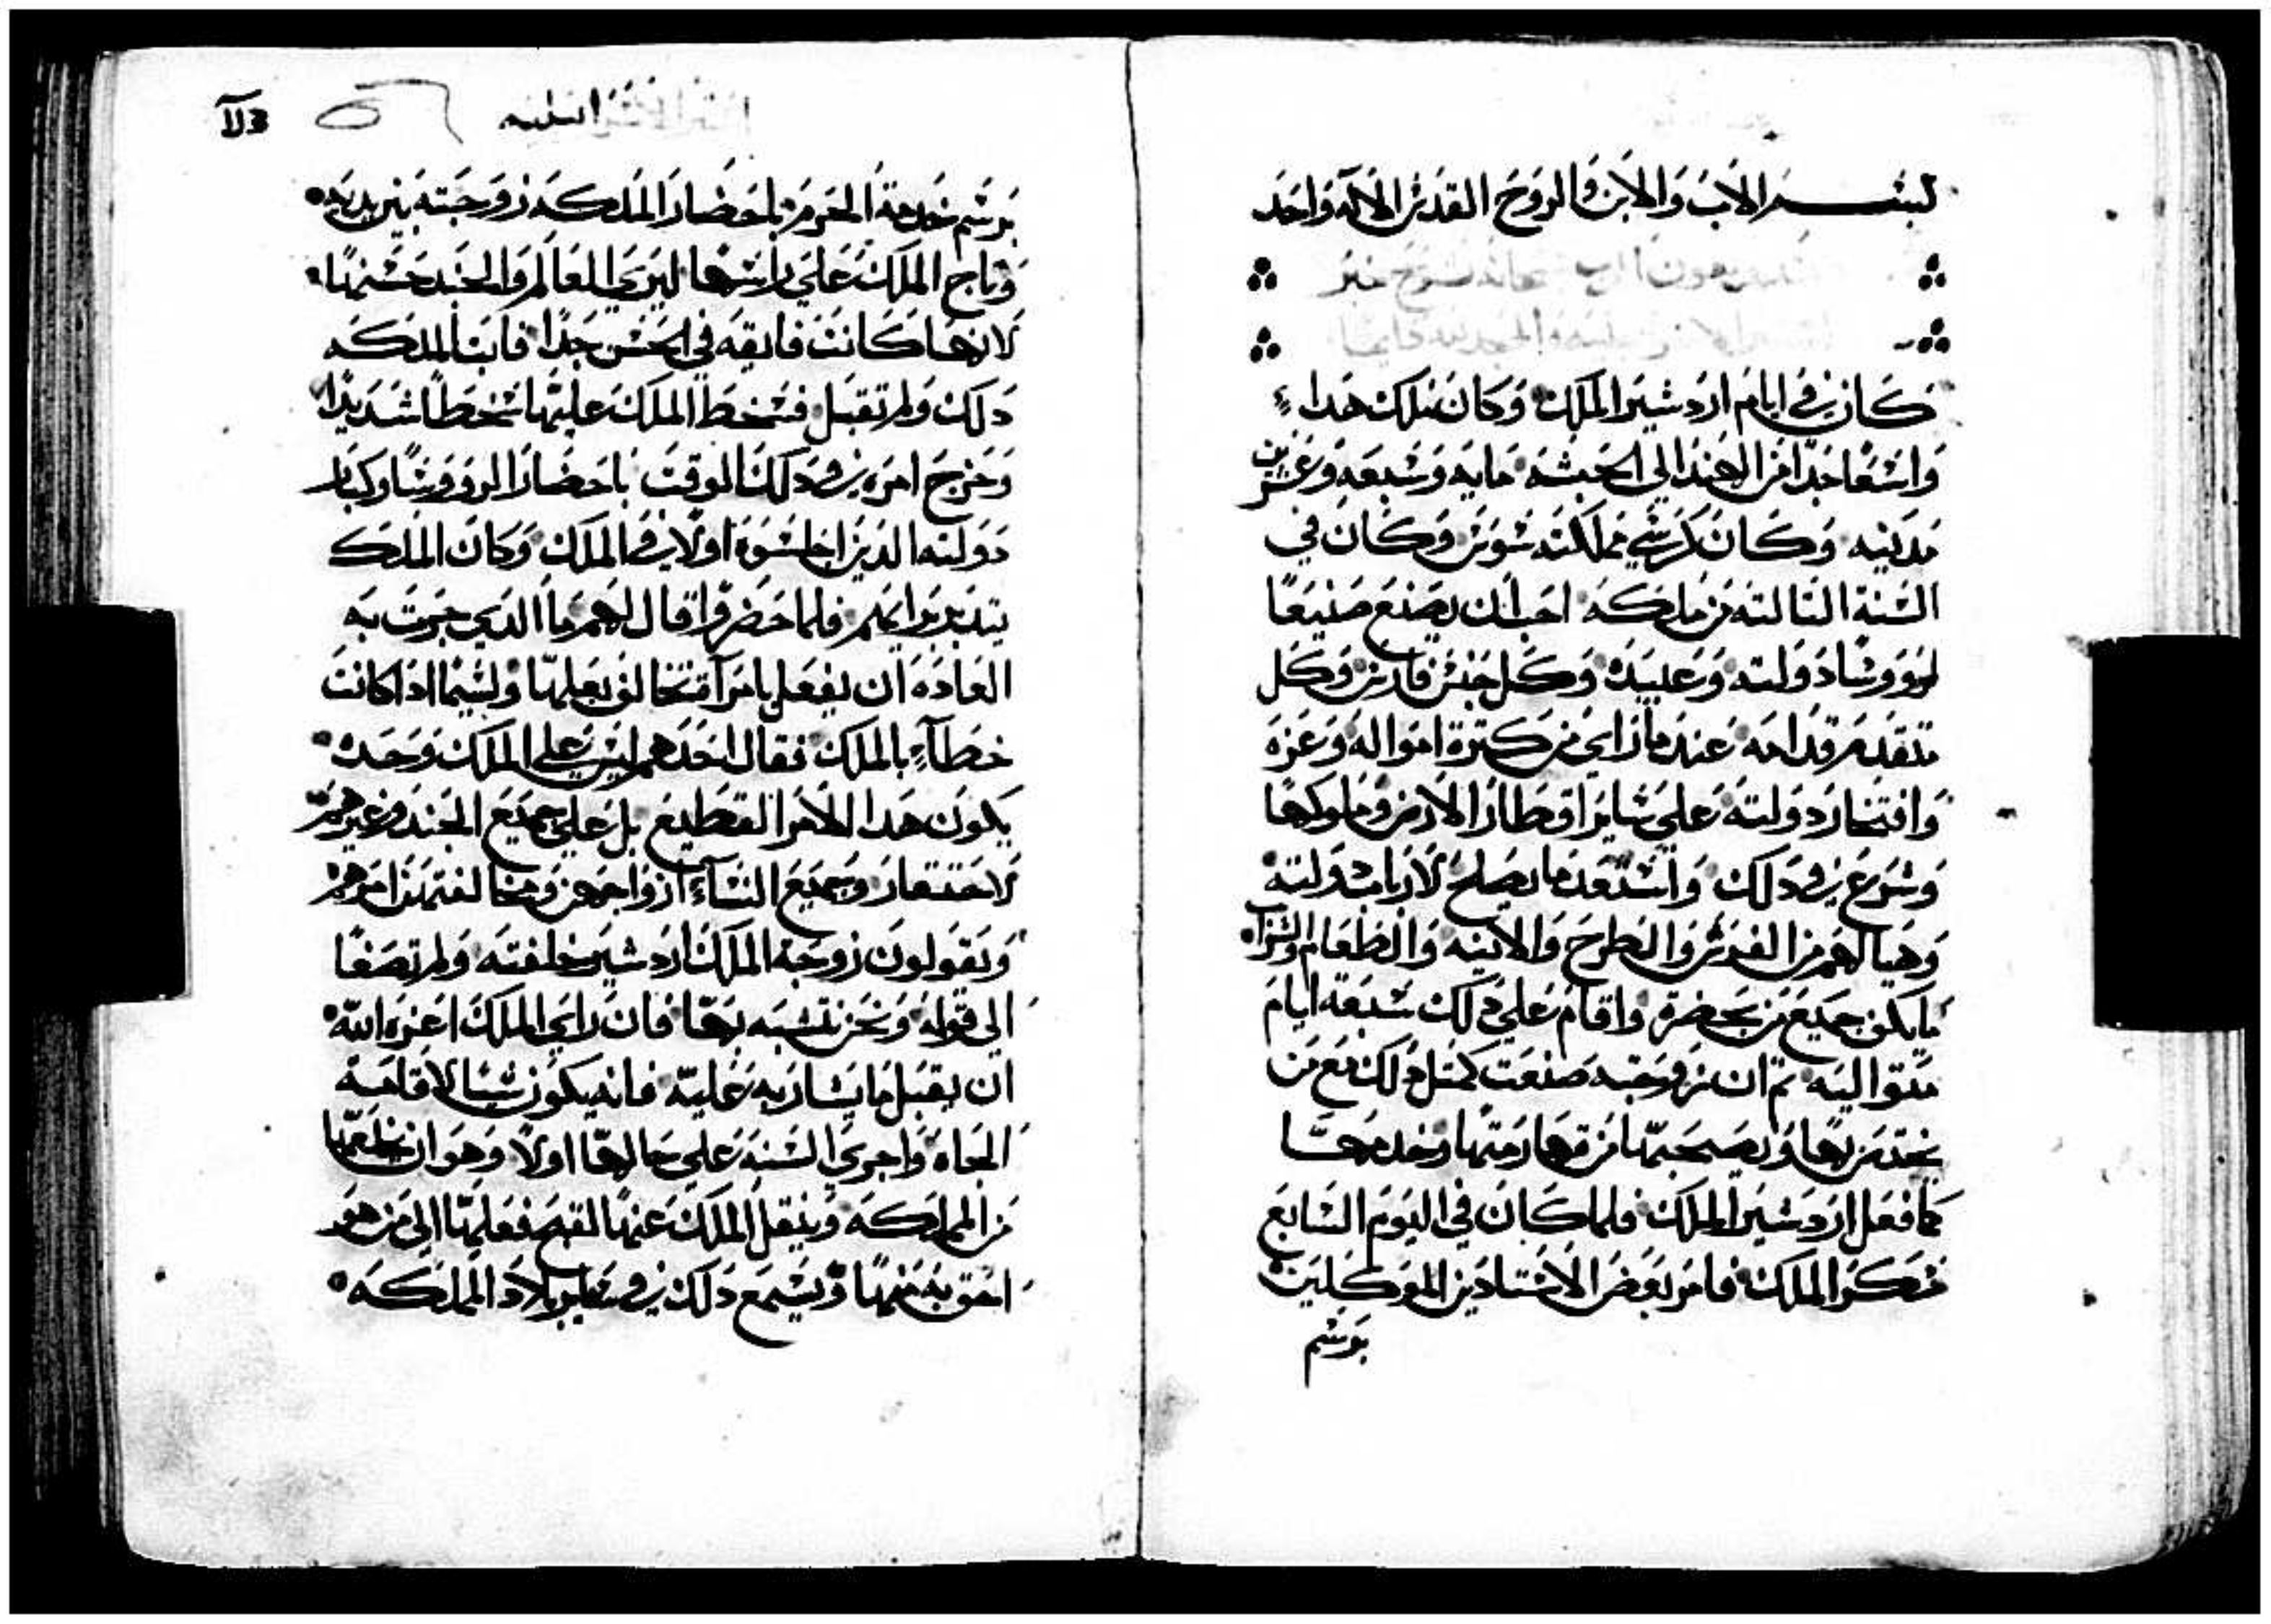 بسم الاب والابن والروح القدس الاله واحد
بعون الرب سبحانه نشرح خبر
كان في ايام اردشير الملك وكان ملك هدا
واسعا جدا من الهند الي الحبشه مايه وسبعه وعشرين
مدينه وكان كرسي مملكته سوس وكان في
السنة التالته من ملكه احب ان يصنع صنيعا
لرووسا دولته وعبيده وكل جنس فارس وكل
متقدم قدامه عندما راي من كترة امواله وعزه
وافتخار دولته علي ساير اقطار الارض وملوكها
وشرع في دلك واستعد ما يصلح لارباب دولته
وهيا لهم من الفرش والطرح والانيه والطعام والشراب
ما يكفي جميع من بحضرة واقام علي دلك سبعة ايام
متواليه تم ان زوجته صنعت كمتل دلك مع من
يختص بها ويصحبها من قهارمتها وخدمها
كما فعل اردشير الملك فلما كان في اليوم السابع
سكر الملك فامر بعض الاستادين الموكلين
برسم
استير
برسم خدمة الحرم باحضار الملكه زوجته بين يديه
وتاج الملك علي راسها ليري العالم والجند حسنها
لانها كانت فايقه في الحسن جدا فابت الملكه
دلك ولم تقبل فسخط الملك عليها سخطا شديدا
وخرج امره في دلك الوقت باحضار الروووسا وكبار
دولته الدين اجلسوه اولا في الملك وكان الملك
يتدبر برايهم فلما حضروا قال لهم ما الدي جرت به
العاده ان يفعل بامراة تخالف بعلها ولسيما ادا كانت
خطاء بالملك فقال احدهم ليس علي الملك وحده
يكون هدا الامر الفظيع بل علي جميع الجند وغيرهم
لاحتقار وجميع النساء ازواجهن ومخالفتهن امرهم
ويقولون زوجة الملك اردشير خالفته ولم تصغا
الي قوله ونحن نتشبه بها فان راي الملك اعزه الله
ان يقبل ما يشار به عليه فانه يكون سببا لاقامة
الجاه واجري السنه علي حالها اولا وهو ان يخلعها
من المملكه وينقل الملك عنها لقبح فعلها الي من هو
احق به منها ويسمع دلك في ساير بلاد المملكه